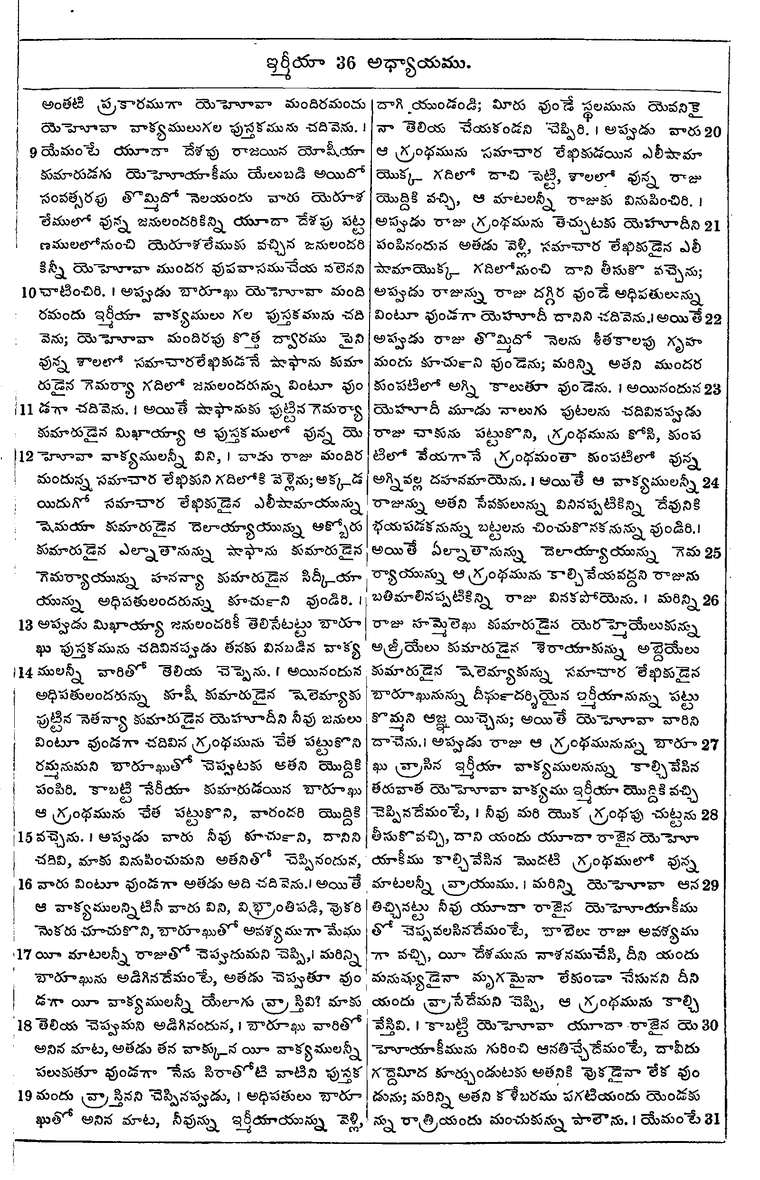 ఇర్మీయా 36 అధ్యాయము.
అంతటి ప్రకారముగా యెహోవా మందిరమందు
యెహోవా వాక్యములుగల పుస్తకమును చదివెను. ।
9 యేమంటే యూదా దేశపు రాజయిన యోషీయా
కుమారుడగు యెహోయాకీము యేలుబడి అయిదో
సంవత్సరపు తొమ్మిదో నెలయందు వారు యెరూశ
లేములో వున్న జనులందరికిన్ని యూదా దేశపు పట్ట
ణములలోనుంచి యెరూశలేముకు వచ్చిన జనులందరి
కిన్నీ యెహోవా ముందర వుపవాసముచేయ వలెనని
10 చాటించిరి. । అప్పుడు బారూఖు యెహోవా మంది
రమందు ఇర్మీయా వాక్యములు గల పుస్తకమును చది
వెను; యెహోవా మందిరపు కొత్త ద్వారము పైని
వున్న శాలలో సమాచారలేఖికుడనే షాఫాను కుమా
రుడైన గెమర్యా గదిలో జనులందరున్ను వింటూ వుం
11 డగా చదివెను. । అయితే షాఫానుకు పుట్టిన గెమర్యా
కుమారుడైన మిఖాయ్యా ఆ పుస్తకములో వున్న యె
12 హోవా వాక్యములన్నీ విని, । వాడు రాజు మందిర
మందున్న సమాచార లేఖికుని గదిలోకి వెళ్లెను; అక్కడ
యిదుగో సమాచార లేఖికుడైన ఎలీషామాయున్ను
షెమయా కుమారుడైన దెలాయ్యాయున్ను ఆక్బోరు
కుమారుడైన ఎల్నాతానున్ను షాఫాను కుమారుడైన
గెమర్యాయున్ను హనన్యా కుమారుడైన సిద్కీయా
యున్ను అధిపతులందరున్ను కూచుర్ని వుండిరి. ।
13 అప్పుడు మిఖాయ్యా జనులందరికీ తెలిసేటట్టు బారూ
ఖు పుస్తకమును చదివినప్పుడు తనకు వినబడిన వాక్య
14 ములన్నీ వారితో తెలియ చెప్పెను. । అయినందున
అధిపతులందరున్ను కూషీ కుమారుడైన షెలెమ్యాకు
పుట్టిన నెతన్యా కుమారుడైన యెహూదీని నీవు జనులు
వింటూ వుండగా చదివిన గ్రంథమును చేత పట్టుకొని
రమ్మనుమని బారూఖుతో చెప్పుటకు అతని యొద్దికి
పంపిరి. కాబట్టి నేరీయా కుమారుడయిన బారూఖు
ఆ గ్రంథమును చేత పట్టుకొని, వారందరి యొద్దికి
15 వచ్చెను. । అప్పుడు వారు నీవు కూచుర్ని, దానిని
చదివి, మాకు వినుపించుమని అతనితో చెప్పినందున,
16 వారు వింటూ వుండగా అతడు అది చదివెను. । అయితే
ఆ వాక్యములన్నిటినీ వారు విని, విభ్రాంతిపడి, వొకరి
నొకరు చూచుకొని, బారూఖుతో అవశ్యముగా మేము
17 యీ మాటలన్నీ రాజుతో చెప్పుదుమని చెప్పి, । మరిన్ని
బారూఖును అడిగినదేమంటే, అతడు చెప్పుతూ వుం
డగా యీ వాక్యములన్నీ యేలాగు వ్రాస్తివి? మాకు
18 తెలియ చెప్పుమని అడిగినందున, । బారూఖు వారితో
అనిన మాట, అతడు తన వాక్కున యీ వాక్యములన్నీ
పలుకుతూ వుండగా నేను సిరాతోటి వాటిని పుస్తక
19 మందు వ్రాస్తినని చెప్పినప్పుడు, । అధిపతులు బారూ
ఖుతో అనిన మాట, నీవున్ను ఇర్మీయాయున్ను వెళ్లి,
దాగి యుండండి; మీరు వుండే స్థలమును యెవనికై
నా తెలియ చేయకండని చెప్పిరి. । అప్పుడు వారు 20
ఆ గ్రంథమును సమాచార లేఖికుడయిన ఎలీషామా
యొక్క గదిలో దాచి పెట్టి, శాలలో వున్న రాజు
యొద్దికి వచ్చి, ఆ మాటలన్నీ రాజుకు వినుపించిరి. ।
అప్పుడు రాజు గ్రంథమును తెచ్చుటకు యెహూదీని 21
పంపినందున అతడు వెళ్లి, సమాచార లేఖికుడైన ఎలీ
షామాయొక్క గదిలోనుంచి దాని తీసుకొ వచ్చెను;
అప్పుడు రాజున్ను రాజు దగ్గిర వుండే అధిపతులున్ను
వింటూ వుండగా యెహూదీ దానిని చదివెను. । అయితే 22
అప్పుడు రాజు తొమ్మిదో నెలను శీతకాలపు గృహ
మందు కూచుర్ని వుండెను; మరిన్ని అతని ముందర
కుంపటిలో అగ్ని కాలుతూ వుండెను. । అయినందున 23
యెహూదీ మూడు నాలుగు పుటలను చదివినప్పుడు
రాజు చాకును పట్టుకొని, గ్రంథమును కోసి, కుంప
టిలో వేయగానే గ్రంథమంతా కుంపటిలో వున్న
అగ్నివల్ల దహనమాయెను. । అయితే ఆ వాక్యములన్నీ 24
రాజున్ను అతని సేవకులున్ను వినినప్పటికిన్ని దేవునికి
భయపడకనున్ను బట్టలను చించుకొనకనున్ను వుండిరి. ।
అయితే ఏల్నాతానున్ను దెలాయ్యాయున్ను గెమ 25
ర్యాయున్ను ఆ గ్రంథమును కాల్చివేయవద్దని రాజును
బతిమాలినప్పటికిన్ని రాజు వినకపోయెను. । మరిన్ని 26
రాజు హమ్మెలెఖు కుమారుడైన యెరహ్మెయేలుకున్ను
అజ్రీయేలు కుమారుడైన శెరాయాకున్ను అబ్దెయేలు
కుమారుడైన షెలెమ్యాకున్ను సమాచార లేఖికుడైన
బారూఖునున్ను దీర్ఘదర్శియైన ఇర్మీయానున్ను పట్టు
కొమ్మని ఆజ్ఞ యిచ్చెను; అయితే యెహోవా వారిని
దాచెను. । అప్పుడు రాజు ఆ గ్రంథమునున్ను బారూ 27
ఖు వ్రాసిన ఇర్మీయా వాక్యములనున్ను కాల్చివేసిన
తరువాత యెహోవా వాక్యము ఇర్మీయా యొద్దికి వచ్చి
చెప్పినదేమంటే, । నీవు మరి యొక గ్రంథపు చుట్టను 28
తీసుకొవచ్చి, దాని యందు యూదా రాజైన యెహో
యాకీము కాల్చివేసిన మొదటి గ్రంథములో వున్న
మాటలన్నీ వ్రాయుము. । మరిన్ని యెహోవా ఆన 29
తిచ్చినట్టు నీవు యూదా రాజైన యెహోయాకీము
తో చెప్పవలసినదేమంటే, బాబెలు రాజు అవశ్యము
గా వచ్చి, యీ దేశమును నాశనముచేసి, దీని యందు
మనుష్యుడైనా మృగమైనా లేకుండా చేసునని దీని
యందు వ్రాసేదేమని చెప్పి, ఆ గ్రంథమును కాల్చి
వేస్తివి. । కాబట్టి యెహోవా యూదా రాజైన యె 30
హోయాకీమును గురించి ఆనతిచ్చేదేమంటే, దావీదు
గద్దెమీద కూర్చుండుటకు అతనికి వొకడైనా లేక వుం
డును; మరిన్ని అతని కళేబరము పగటియందు యెండకు
న్ను రాత్రియందు మంచుకున్ను పాలౌను. । యేమంటే 31